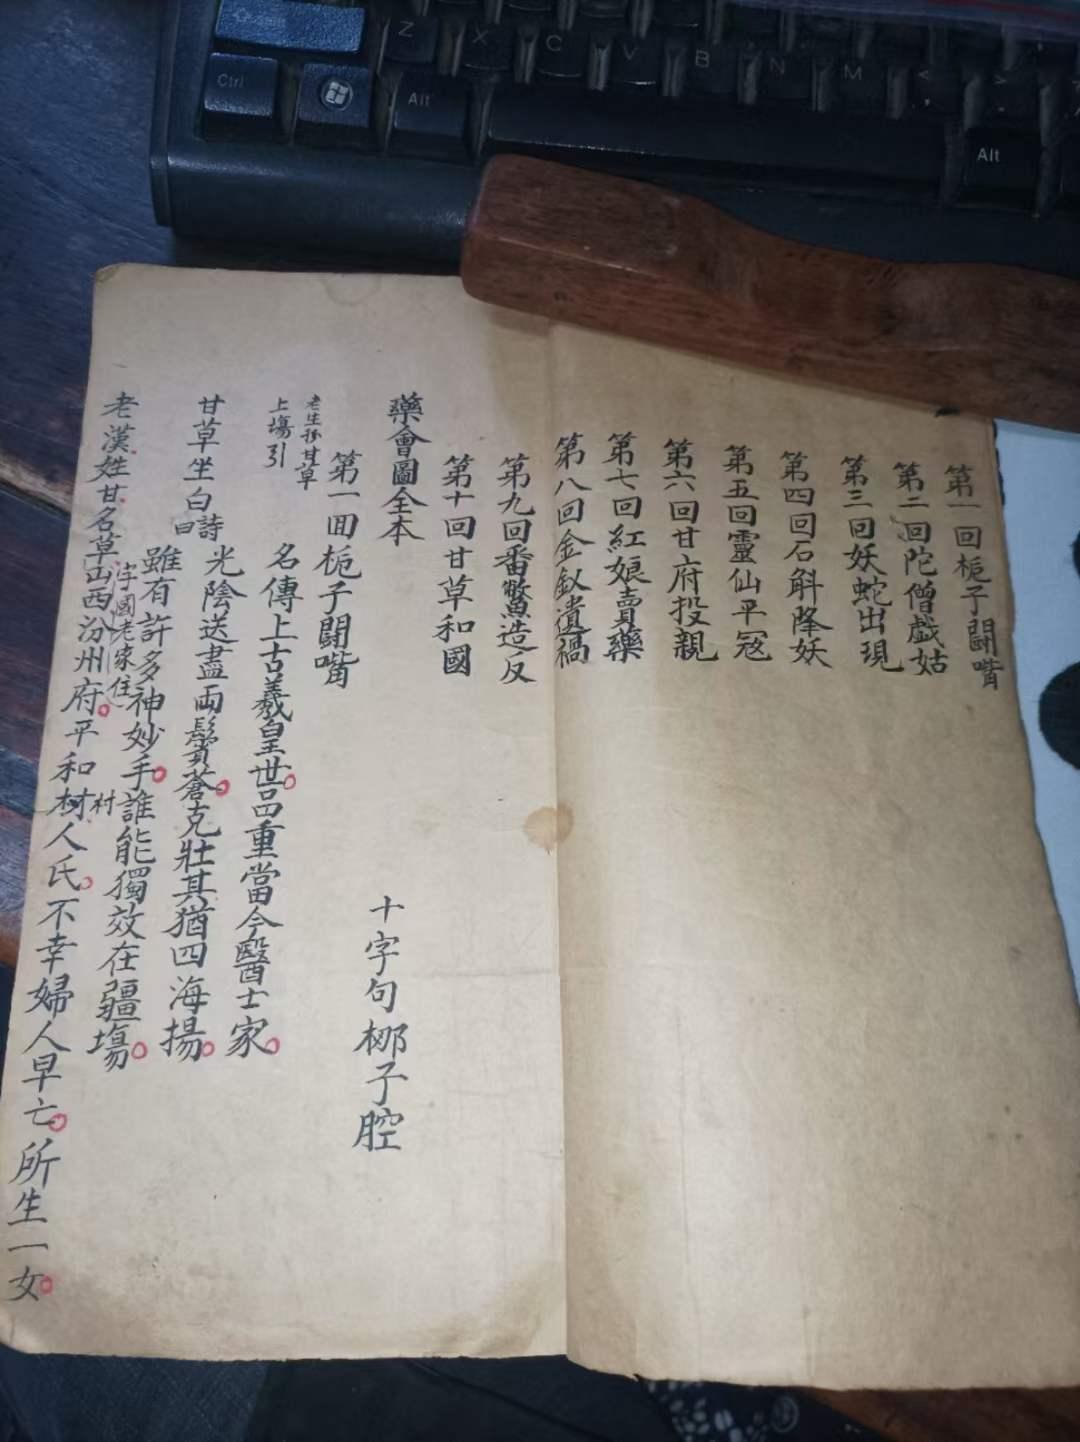 第一回梔子鬪嘴
第二回陀僧戲姑
第三回妖蛇出現
第四回石斛降妖
第五回靈仙平寇
第六回甘府投親
第七回紅娘賣藥
第八回金釵遺禍
第九回番鱉造反
第十回甘草和國
藥會圖全本
十字句梆子腔
第一回梔子鬪嘴
老生扮甘草
上場引
名傳上古羲皇世品重當今醫士家
甘草坐白詩曰
光陰送盡兩鬢蒼克壯其猶四海揚
雖有許多神妙手誰能獨效在疆場
老漢姓甘名草字國老家住山西汾州府平和村人氏不幸婦人早亡所生一女
Ctrl
Alt
Z
X
C
V
B
N
M
<
,
>
.
Alt